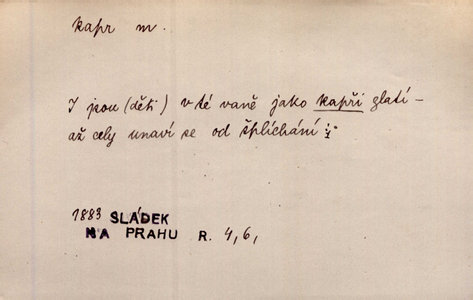 kapr m.
I jsou (děti) v té vaně jako kapři zlatí –
až celý unaví se od šplíchání
1883 SLÁDEK
NA PRAHU R. 4,6,